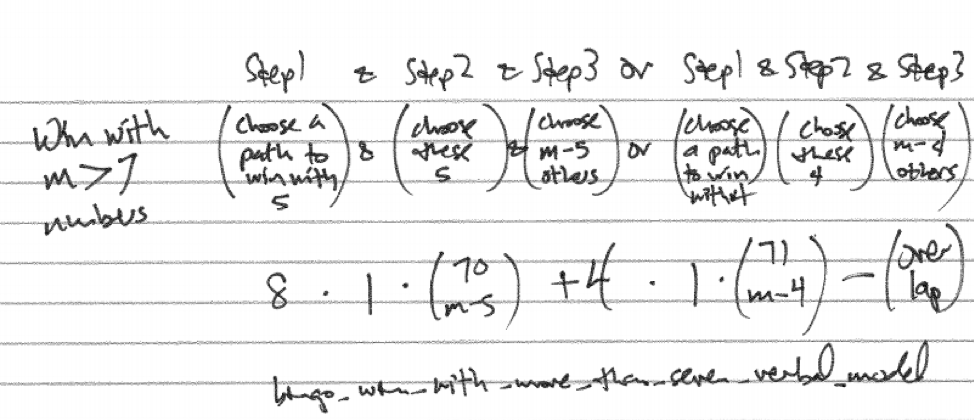 Step1 & Step2 & Step3 or Step1 & Step2 & Step3
Win with m>7 numbers (choose a path to win with 5) & (choose these 5) & (choose m-5 others) or (choose a path to win with 4) (chose these 4) (choose m-4 others)
8 · 1 · (70 m-5) + 4 · 1 · (71 m-4) - (over lap)
bingo_when_with_more_than_seven_verbal_model